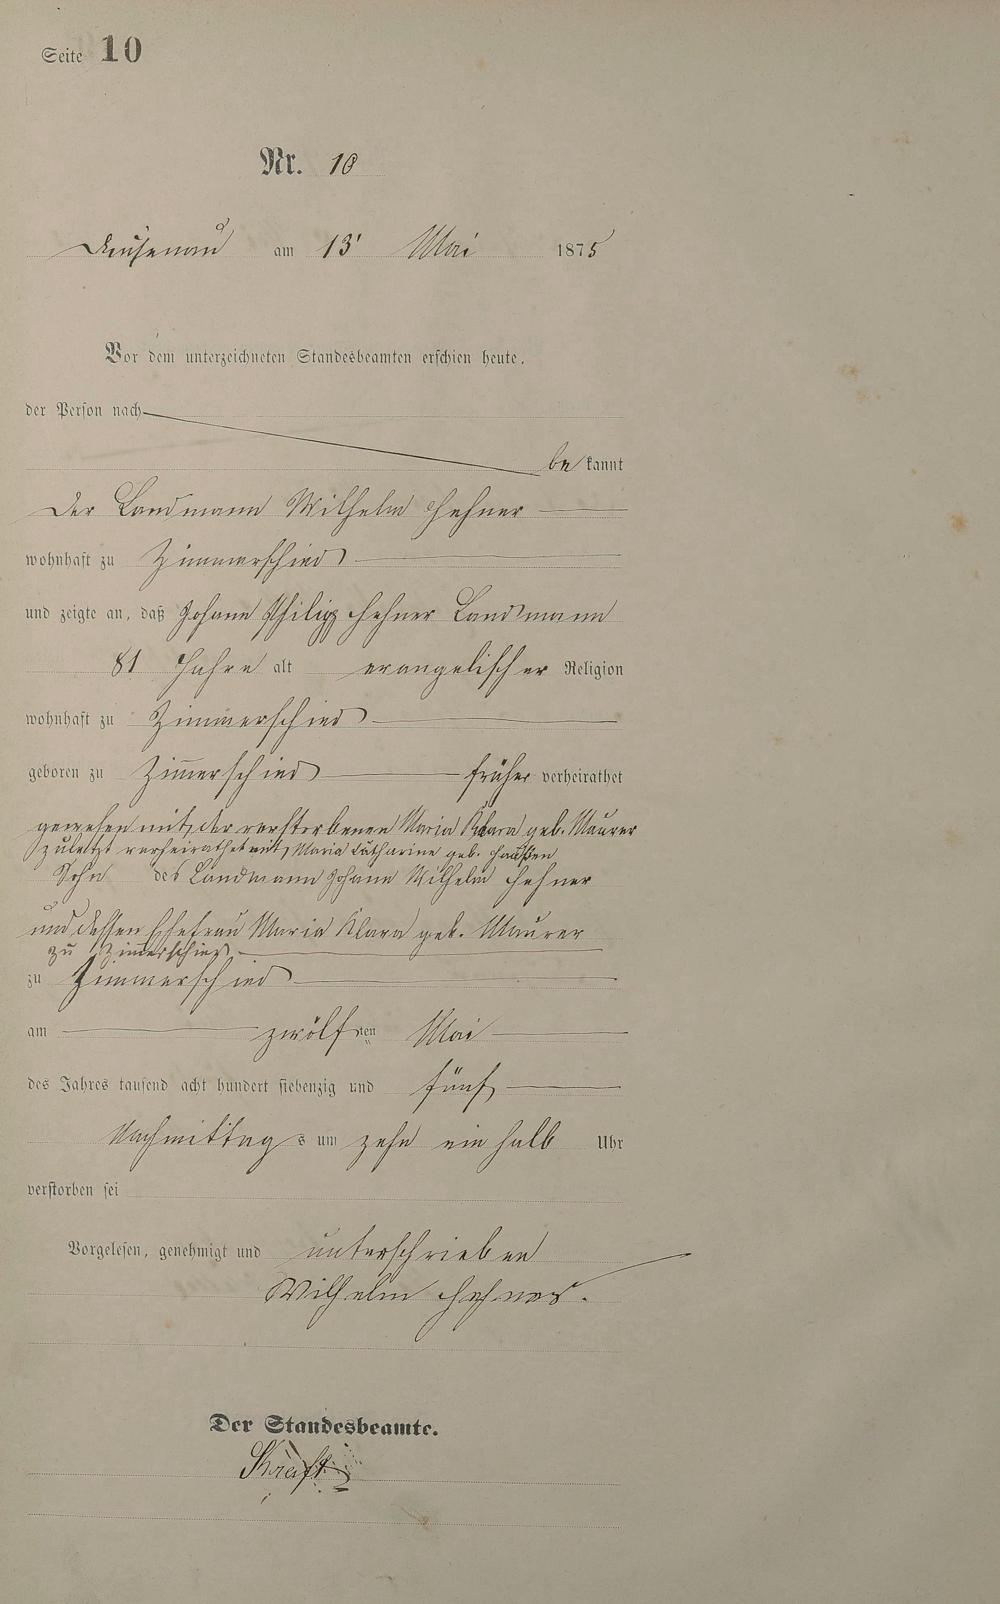 Seite 10
Nr. 10
Deusenau am 13' Mai 1875
Vor dem unterzeichneten Standesbeamten erschien heute.
der Person nach
be kannt
Der Landmann Wilhelm Hehner
wohnhaft zu Zimmerschied
und zeigte an, daß Johann Philipp Hehner Landmann
81 Jahre alt evangelischer Religion
wohnhaft zu Zimmerschied
geboren zu Zim̅erschied früher verheirathet
gewesen mit der verstorbenen Maria Klara geb. Maurer
zuletzt verheirathet mit Maria Catharine geb.
Sohn des Landmann Johann Wilhelm Hehner
und dessen Ehefrau Maria Klara geb. Maurer
zu Zim̅erschied
zu Zimmerschied
am zwölf ten Mai
des Jahres tausend acht hundert siebenzig und fünf
Nachmittag s um zehn ein halb Uhr
verstorben sei
Vorgelesen, genehmigt und unterschrieben
Wilhelm Hehner.
Der Standesbeamte.
Kraft